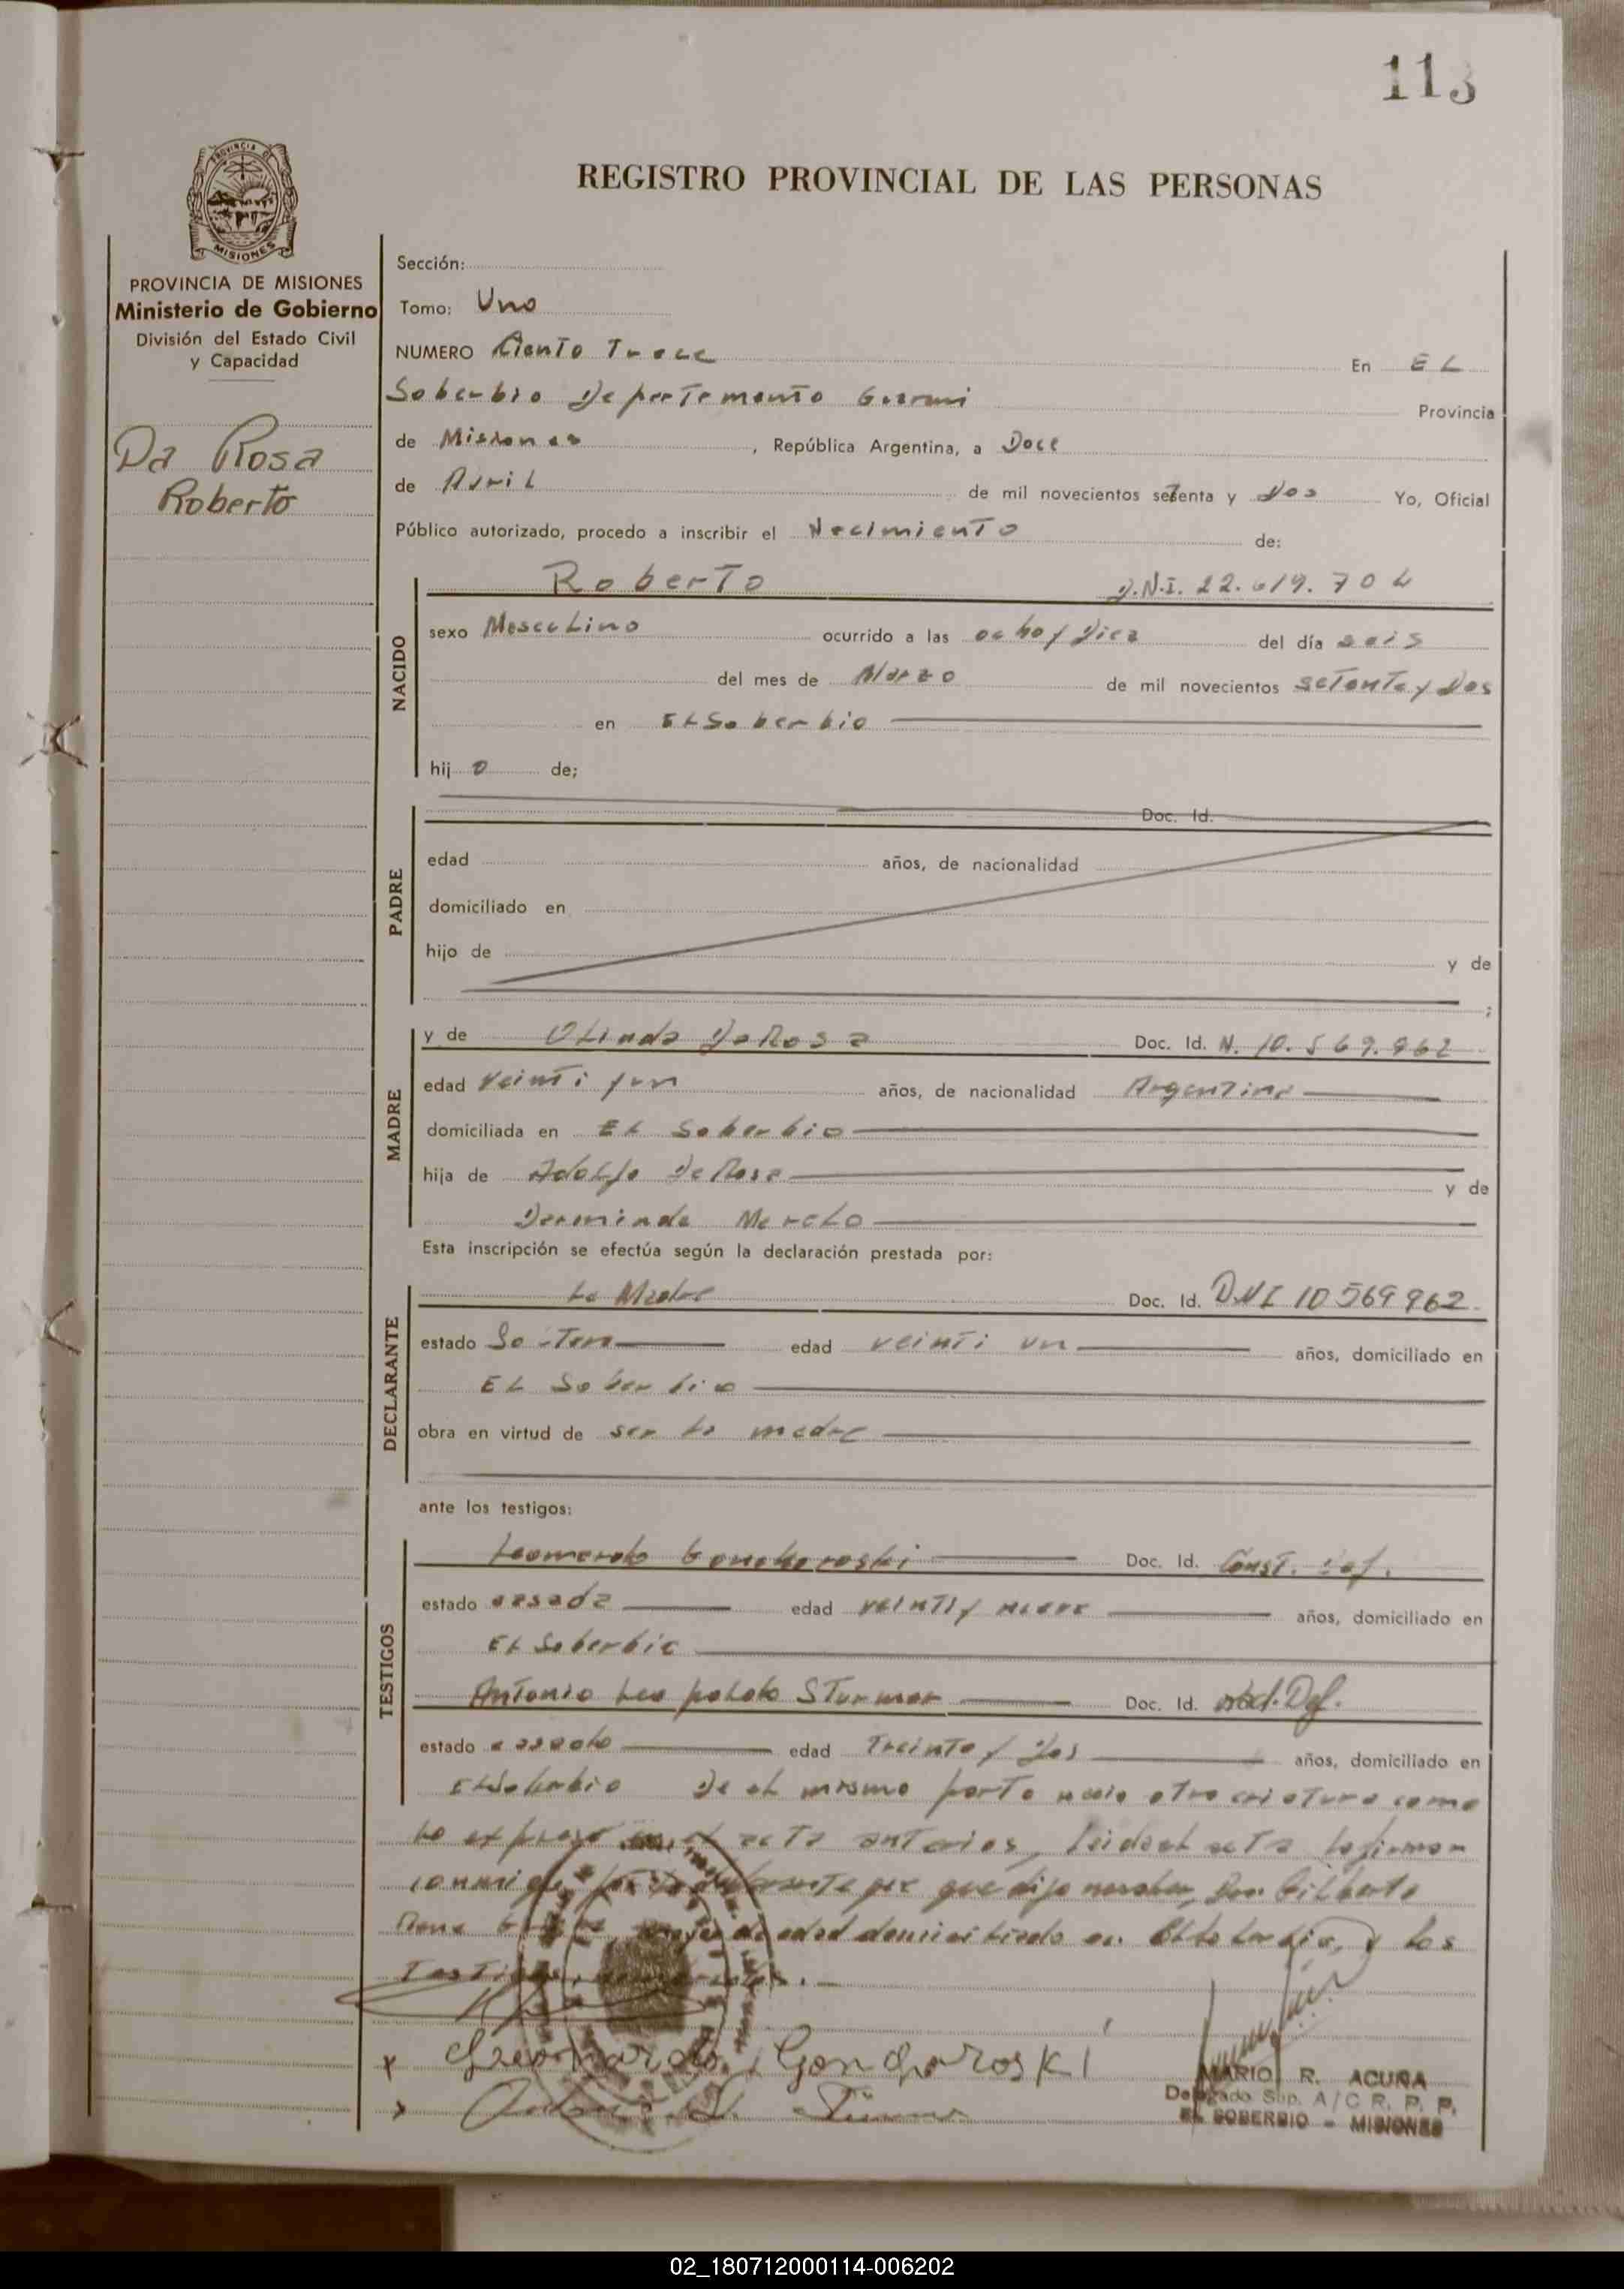 113
PROVINCIA DE
MISIONES
REGISTRO PROVINCIAL DE LAS PERSONAS
PROVINCIA DE MISIONES
Ministerio de Gobierno
División del Estado Civil
y Capacidad
Da Rosa
Roberto
Sección:
Tomo: Uno
NUMERO Ciento Trece En EL
Soberbio Departamento Guarani Provincia
de Misiones, República Argentina, a Doce
de Avril de mil novecientos setenta y Dos Yo, Oficial
Público autorizado, procedo a inscribir el Nacimiento de:
NACIDO
Roberto D.N.I. 22.619.704
sexo Masculino ocurrido a las ocho y Diez del día seis
del mes de Marzo de mil novecientos setenta y Dos
en EL Soberbio
hijo de;
PADRE
Doc. Id.
edad años, de nacionalidad
domiciliado en
hijo de y de
;
MADRE
y de Olinda Da Rosa Doc. Id. N. 10.569.962
edad Veinti un años, de nacionalidad Argentina
domiciliada en EL Soberbio
hija de Adolfo Da Rosa y de
Derminda Merelo
Esta inscripción se efectúa según la declaración prestada por:
DECLARANTE
La Madre Doc. Id. DNI 10569962
estado Soltera edad veinti un años, domiciliado en
EL Soberbio
obra en virtud de ser la madre
ante los testigos:
TESTIGOS
Leonardo Goncharoski Doc. Id. Const. Def.
estado casado edad veinti y nueve años, domiciliado en
EL Soberbio
Antonio Leopoldo Sturmer Doc. Id. Def.
estado casado edad Treinta y Dos años, domiciliado en
EL Soberbio De el mismo parto nacio otra criatura como
lo expresa el acta anterior, Leida el acta la firman
conmigo por la declarante que dijo no saber, Don Gilberto
de edad domiciliado en EL Soberbio, y los
Testigos
x Leonardo Goncharoski
x Antonio L.
MARIO R. ACUÑA
Delegado Sup. A/C R. P. P.
EL SOBERBIO - MISIONES
02_180712000114-006202